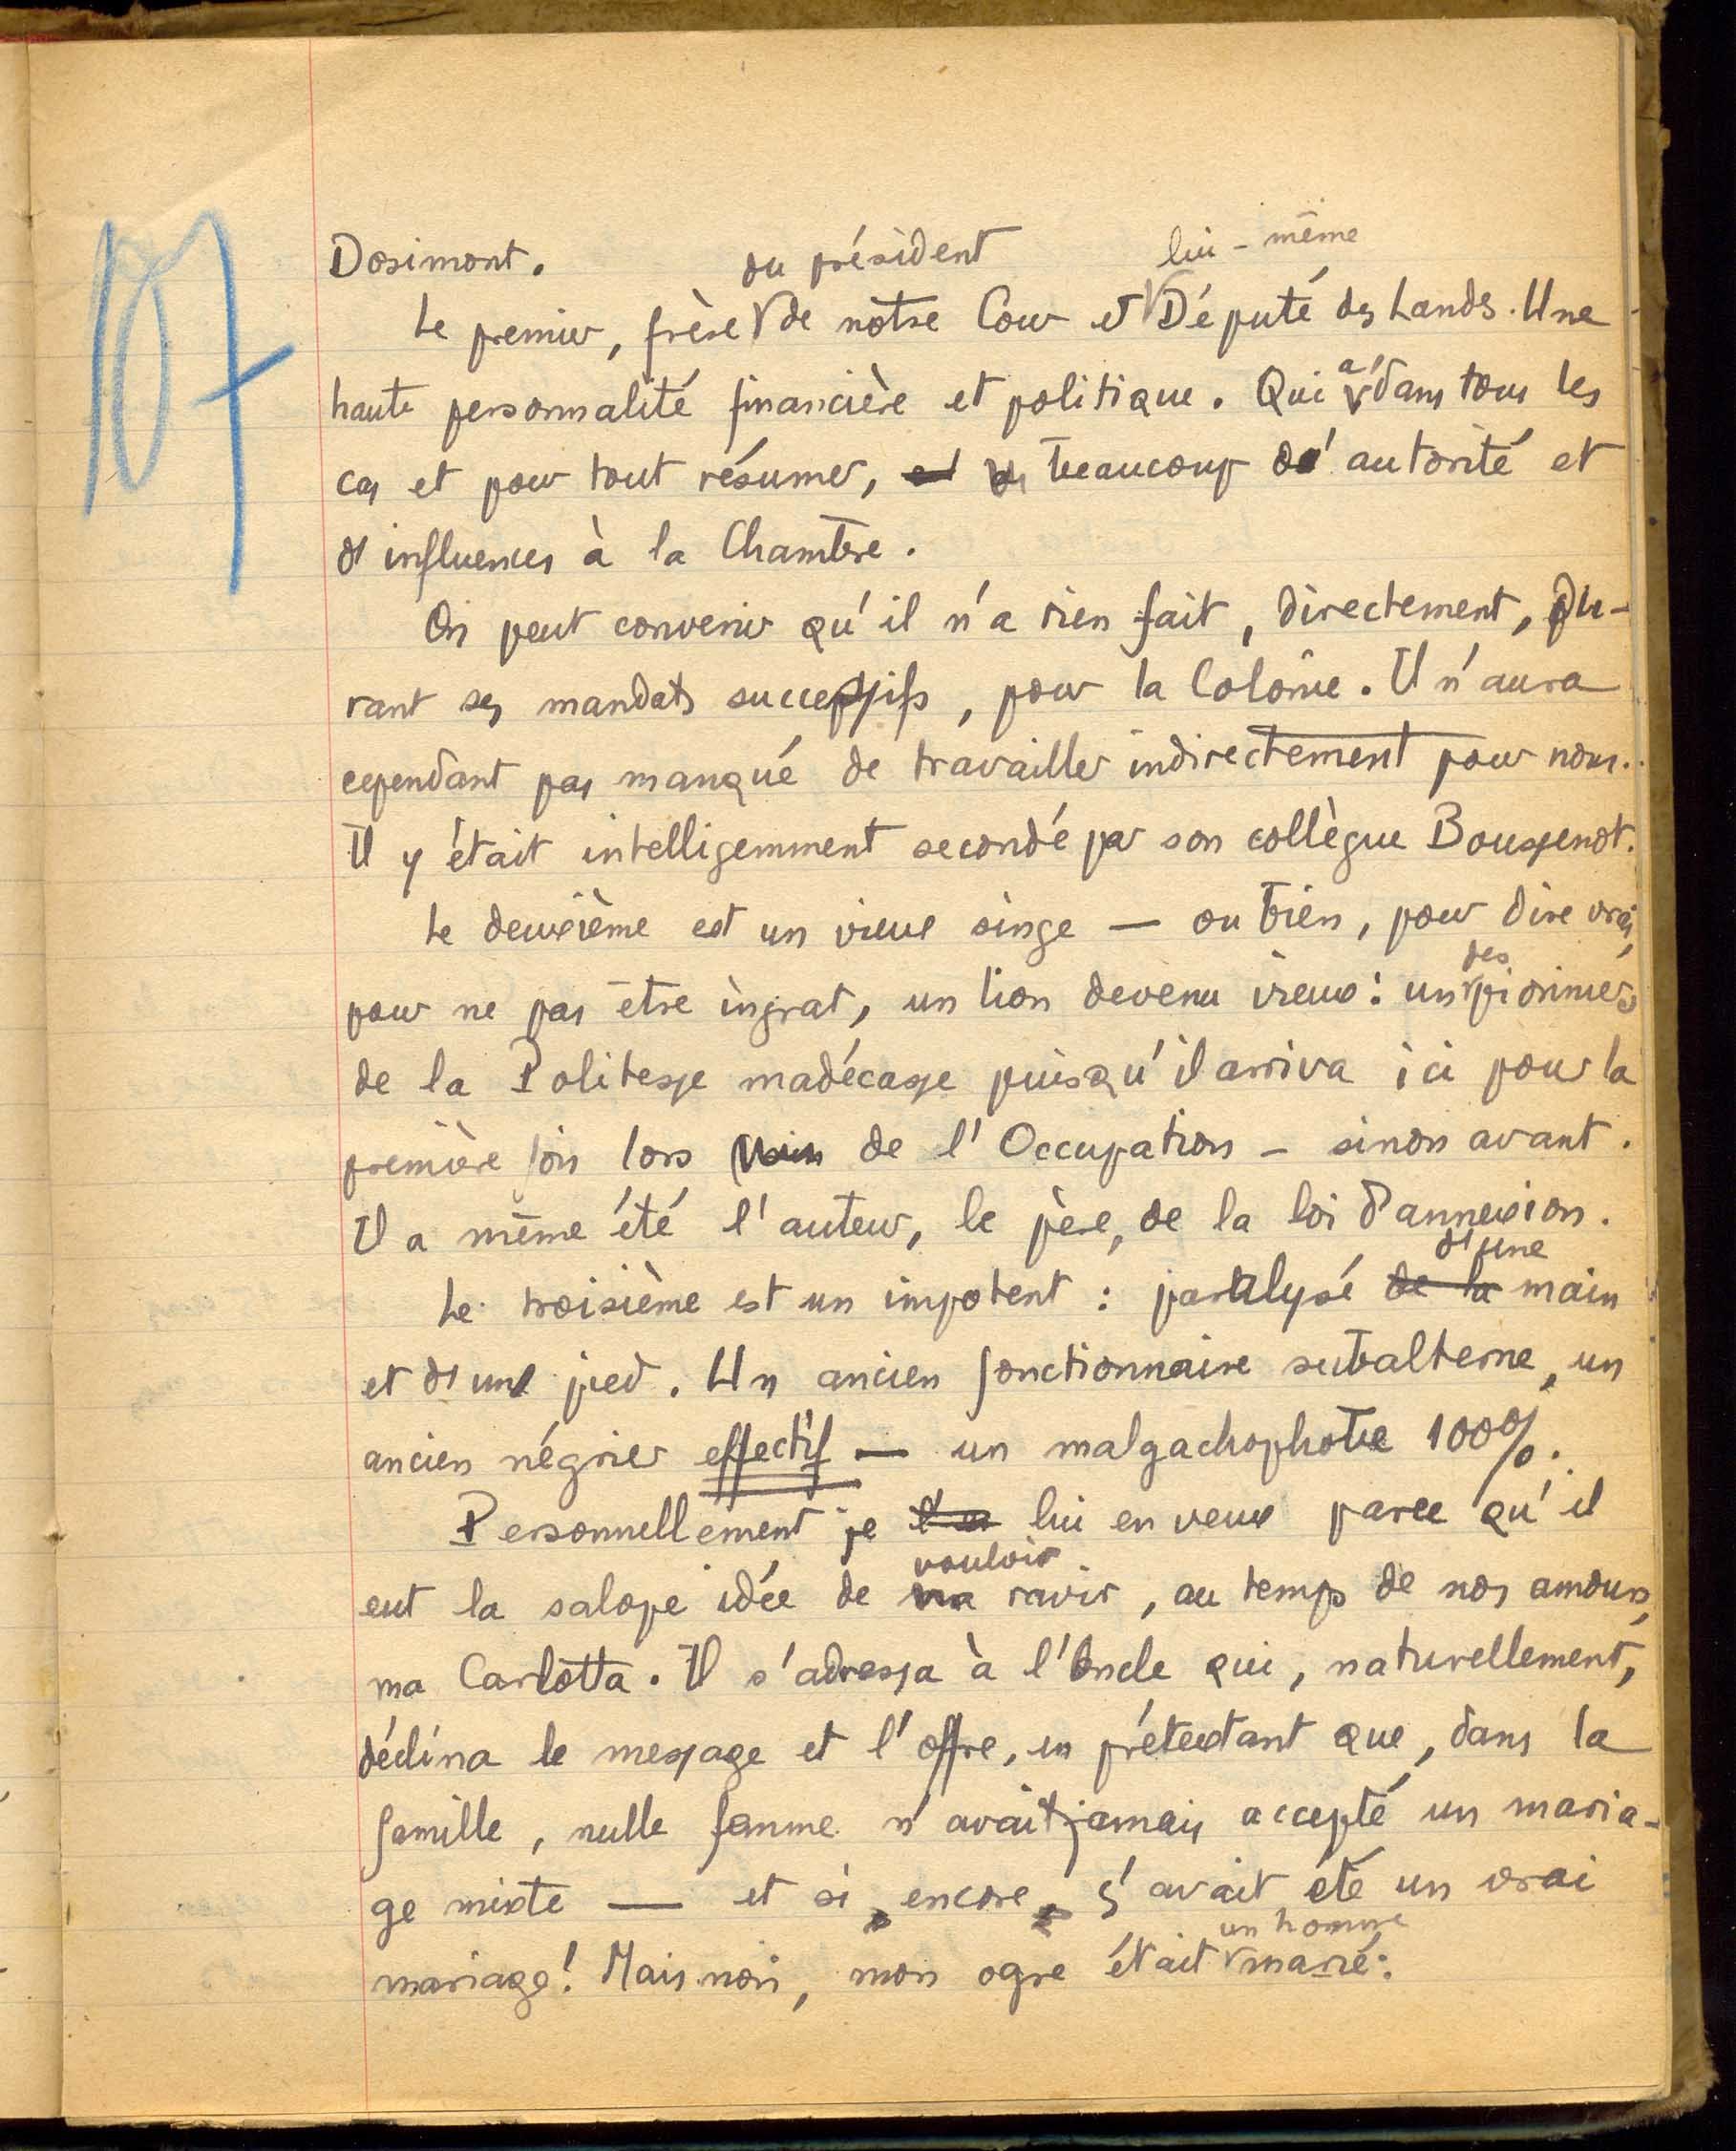 107
Dosimont.
Le premier, frère du président de notre Cour et lui-même Député des Landes. Une
haute personnalité financière et politique. Qui a, dans tous les
cas et pour tout résumer, beaucoup d'autorité et
d'influences à la Chambre.
On peut convenir qu'il n'a rien fait, directement, du-
rant ses mandats successifs, pour la Colonie. Il n'aura
cependant pas manqué de travailler indirectement pour nous.
Il y était intelligemment secondé par son collègue Boussenot.
Le deuxième est un vieux singe — ou bien, pour dire vrai,
pour ne pas être ingrat, un lion devenu vieux : un des pionniers
de la Politesse madécasse puisqu'il arriva ici pour la
première fois lors de l'Occupation – sinon avant.
Il a même été l'auteur, le père, de la loi d'annexion.
Le troisième est un impotent : paralysé de la d'une main
et d'un pied. Un ancien fonctionnaire subalterne, un
ancien négrier effectif — un malgachophobe 100%.
Personnellement je lui en veux parce qu'il
eut la salope idée de vouloir ravir, au temps de nos amours,
ma Carlotta. Il s'adressa à l'Oncle qui, naturellement,
déclina le message et l'offre, en prétextant que, dans la
famille, nulle femme n'avait jamais accepté un maria-
ge mixte — et si, encore, ç'avait été un vrai
mariage! Mais non, mon ogre était un homme marié.